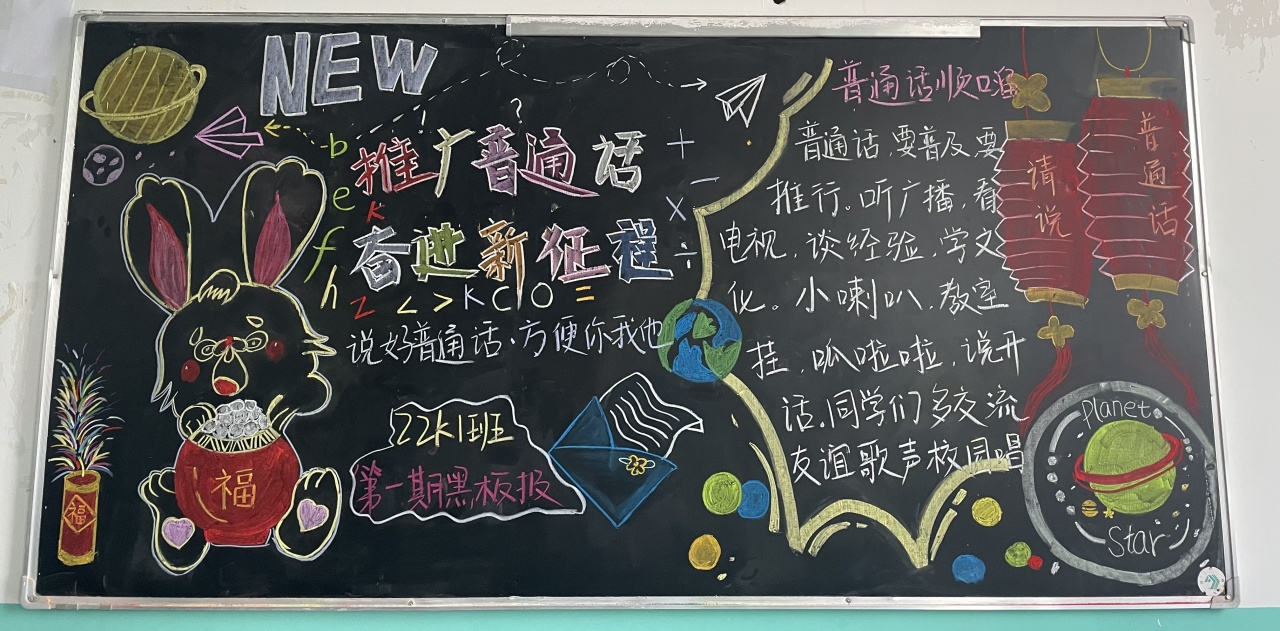 NEW
推广普通话
奋进新征程
b
e
f
h
K
Z < > K C O =
+
-
×
÷
说好普通话·方便你我他
22K1班
第一期黑板报
福
福
普通话顺口溜
普通话,要普及要
推行。听广播,看
电视,谈经验,学文
化。小喇叭,教室
挂,呱啦啦,说开
话,同学们多交流
友谊歌声校园唱
请说
普通话
planet
Star